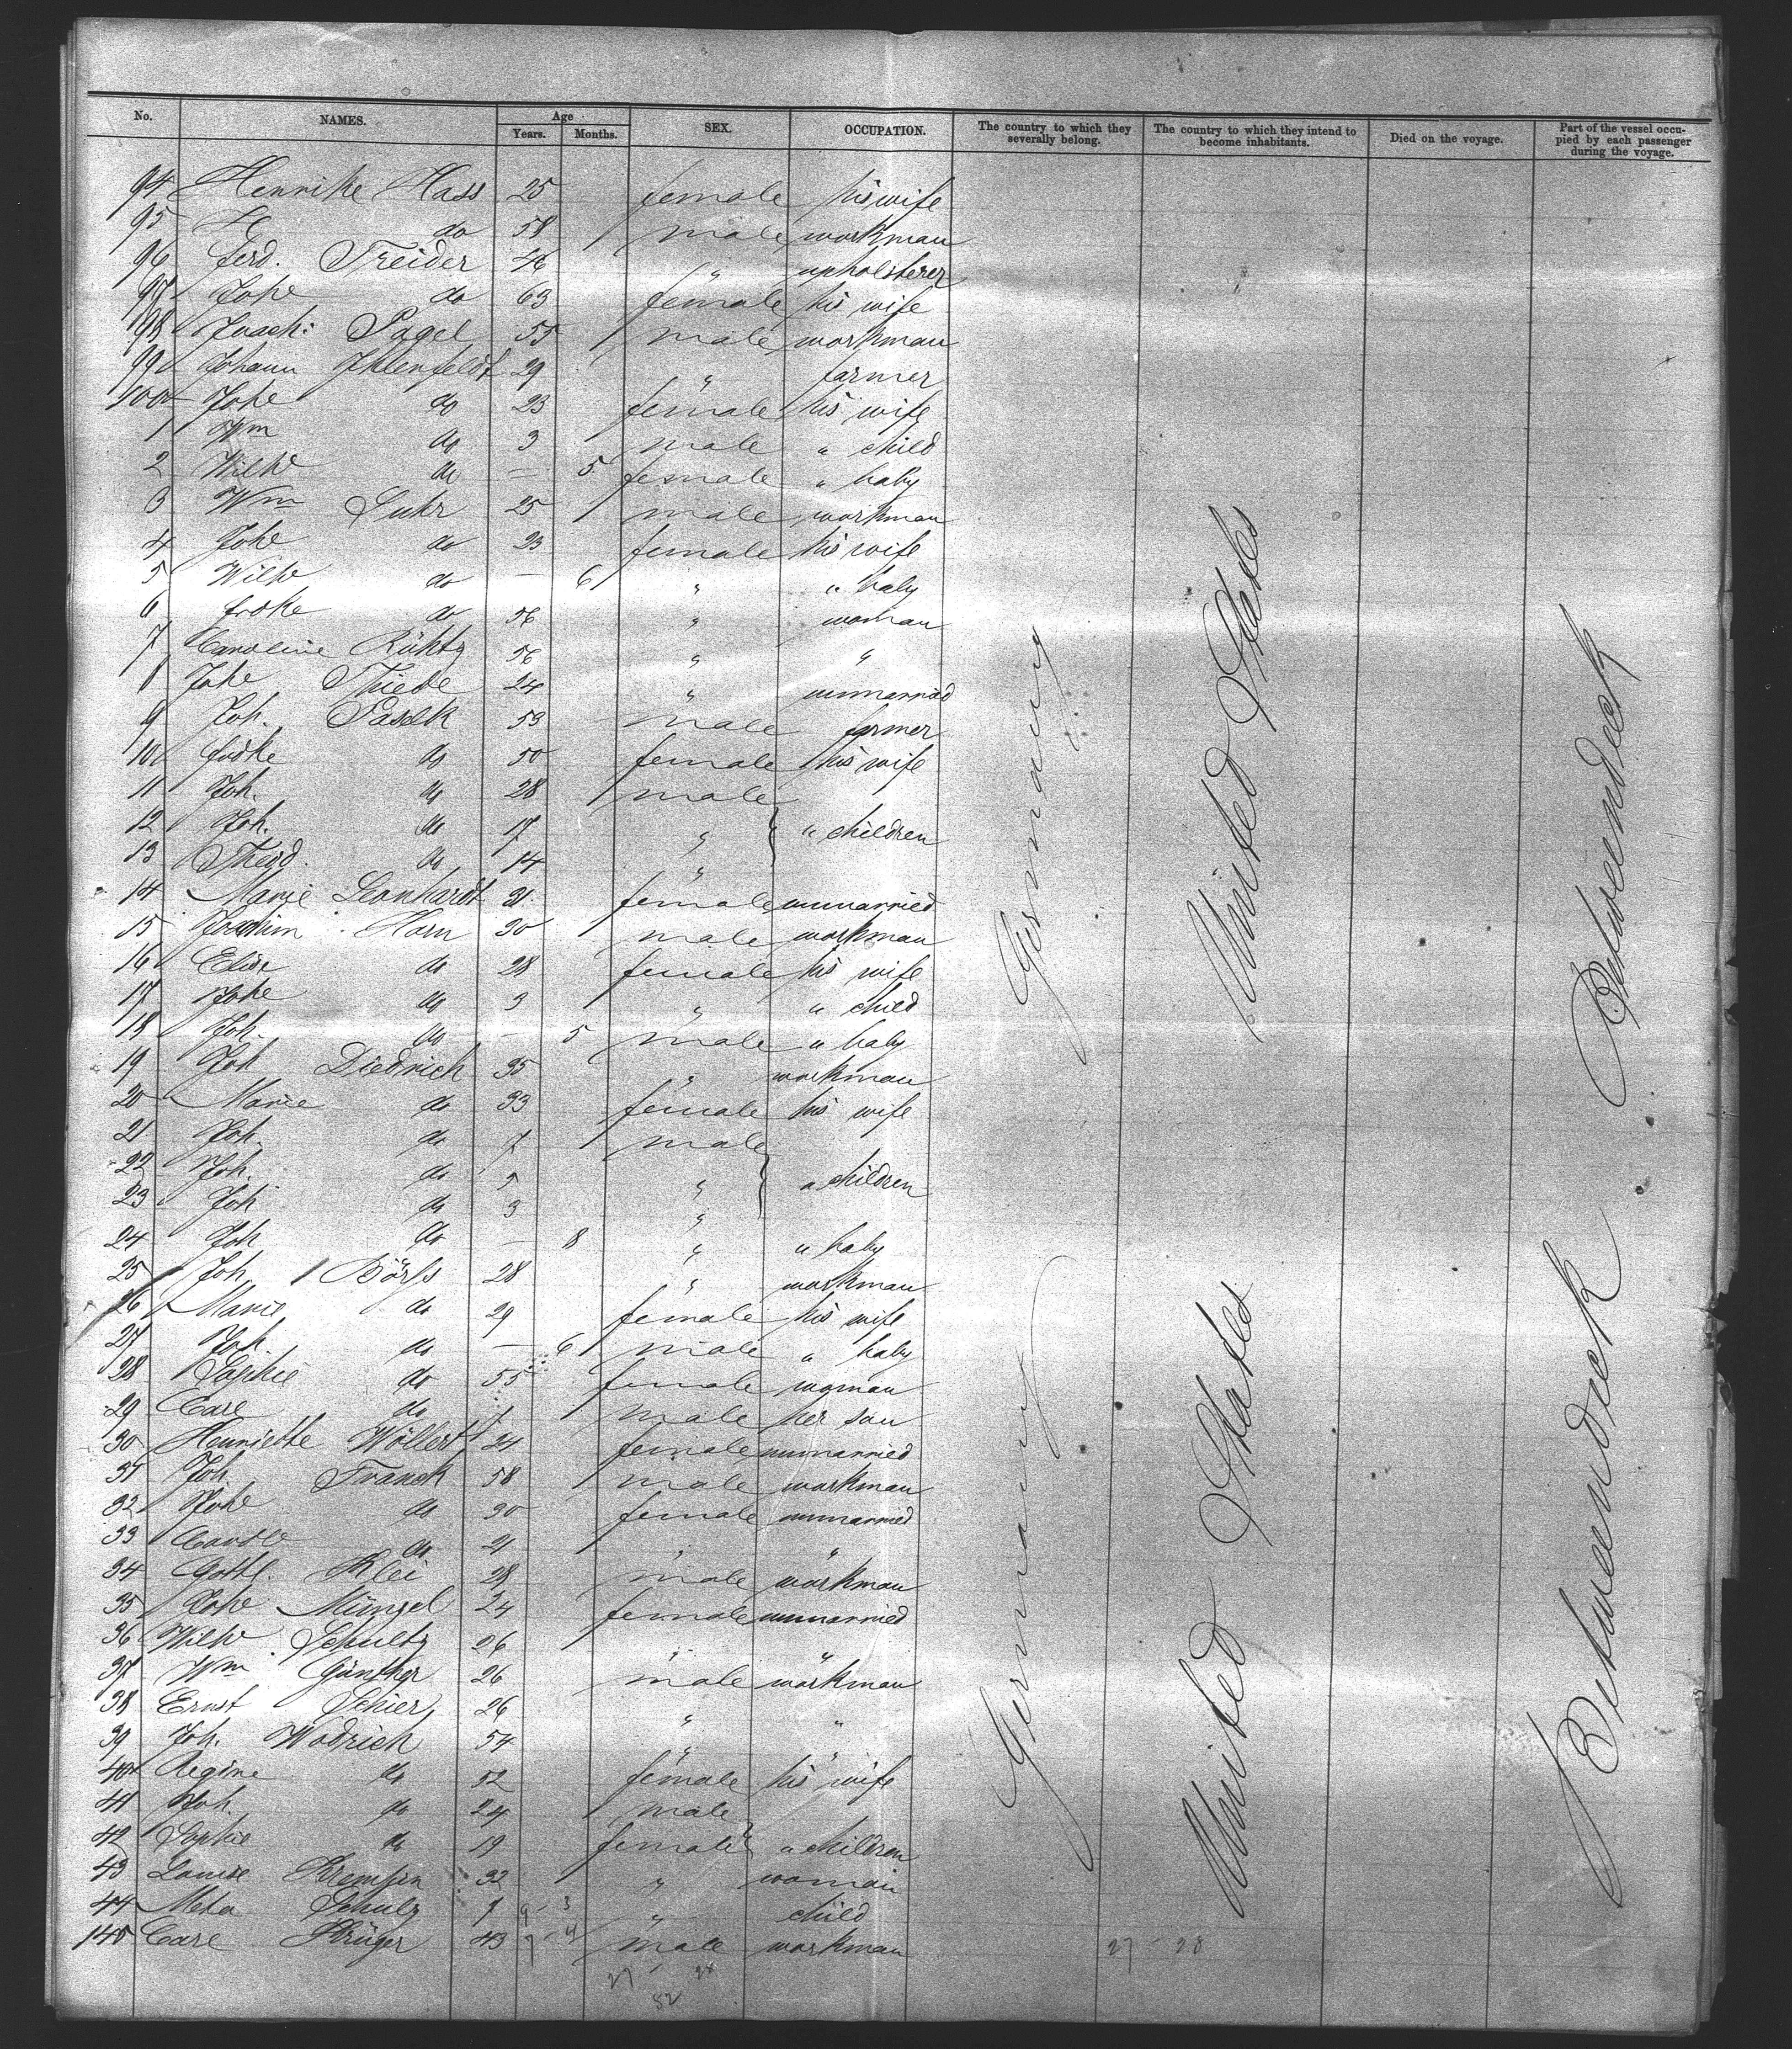 No. NAMES. Age Years. Months. SEX. OCCUPATION. The country to which they severally belong. The country to which they intend to become inhabitants. Died on the voyage. Part of the vessel occupied by each passenger during the voyage.
94 Henrike Hass 25 female his wife
95 H do 58 male workman
96 Ferd. Treider 46 " upholsterer
97 Johe do 63 female his wife
98 Joach: Pagel 55 male workman
99 Johann Ihlenfeldt 29 " farmer
100 Johe do 23 female his wife
1 Wm do 3 male " child
2 Wilhe do — 5 female " baby
3 Wm Suhr 25 male workman
4 Johe do 23 female his wife
5 Wilhe do — 6 " " baby
6 Frdke do 56 " woman
7 Caroline Rühtz 56 " "
8 Johe Thiede 24 " unmarried
9 Joh. Paselk 53 male farmer
10 Frdke do 50 female his wife
11 Joh. do 28 male
12 Joh. do 17 " " children
13 Theod. do 14 "
14 Marie Leonhardt 31 female unmarried
15 Joachim Horn 30 male workman
16 Elise do 28 female his wife
17 Johe do 3 " " child
18 Joh. do — 5 male " baby
19 Joh Diedrich 35 " workman
20 Marie do 33 female his wife
21 Joh. do 7 male
22 Joh. do 5 " " children
23 Joh do 3 "
24 Joh do — 8 " " baby
25 Joh Börss 28 " workman
26 Marie do 29 female his wife
27 Joh. do — 6 male " baby
28 Sophie do 55 female woman
29 Carl do 7 male her son
30 Henriette Wöllert 24 female unmarried
31 Joh Franck 58 male workman
32 Johe do 30 female unmarried
33 do 21 " "
34 Gottl. Klei 28 male workman
35 Johe Müngel 24 female unmarried
36 Wilhe Schultz 26 " "
37 Wm Günther 26 male workman
38 Ernst Schier 26 " "
39 Joh. Wodrich 54 " "
40 Regine do 52 female his wife
41 Joh. do 24 male
42 Sophie do 19 female " children
43 Louise Krempin 32 " woman
44 Meta Schulz 9 - 3 " child
145 Carl Krüger 43 male workman
27 - 28
52
27 - 28
Germany
United States
Betweendeck
Germany
United States
Betweendeck